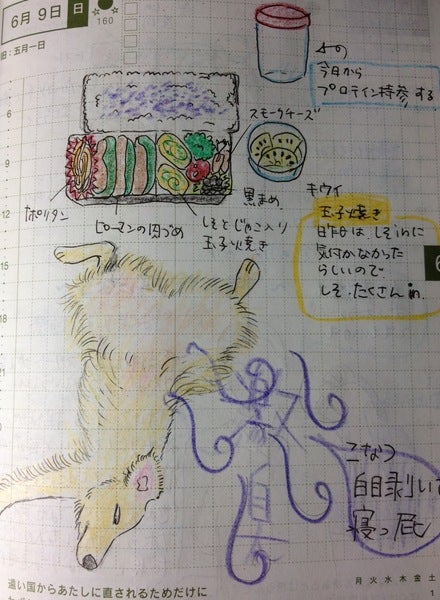 6月 9日 日
160
旧:五月一日
6
9
12
15
18
21
その
今日から
プロテイン持参する
スモークチーズ
キウイ
黒まめ
ナポリタン
ピーマンの肉づめ
しそとじゃこ入り
玉子焼き
玉子焼き
昨日は、しそinに
気付かなかった
らしいので
しそ、たくさんin.
6
白目剥いて
寝っ屁
遠い国からあたしに直されるためだけに
月 火 水 木 金 土
1